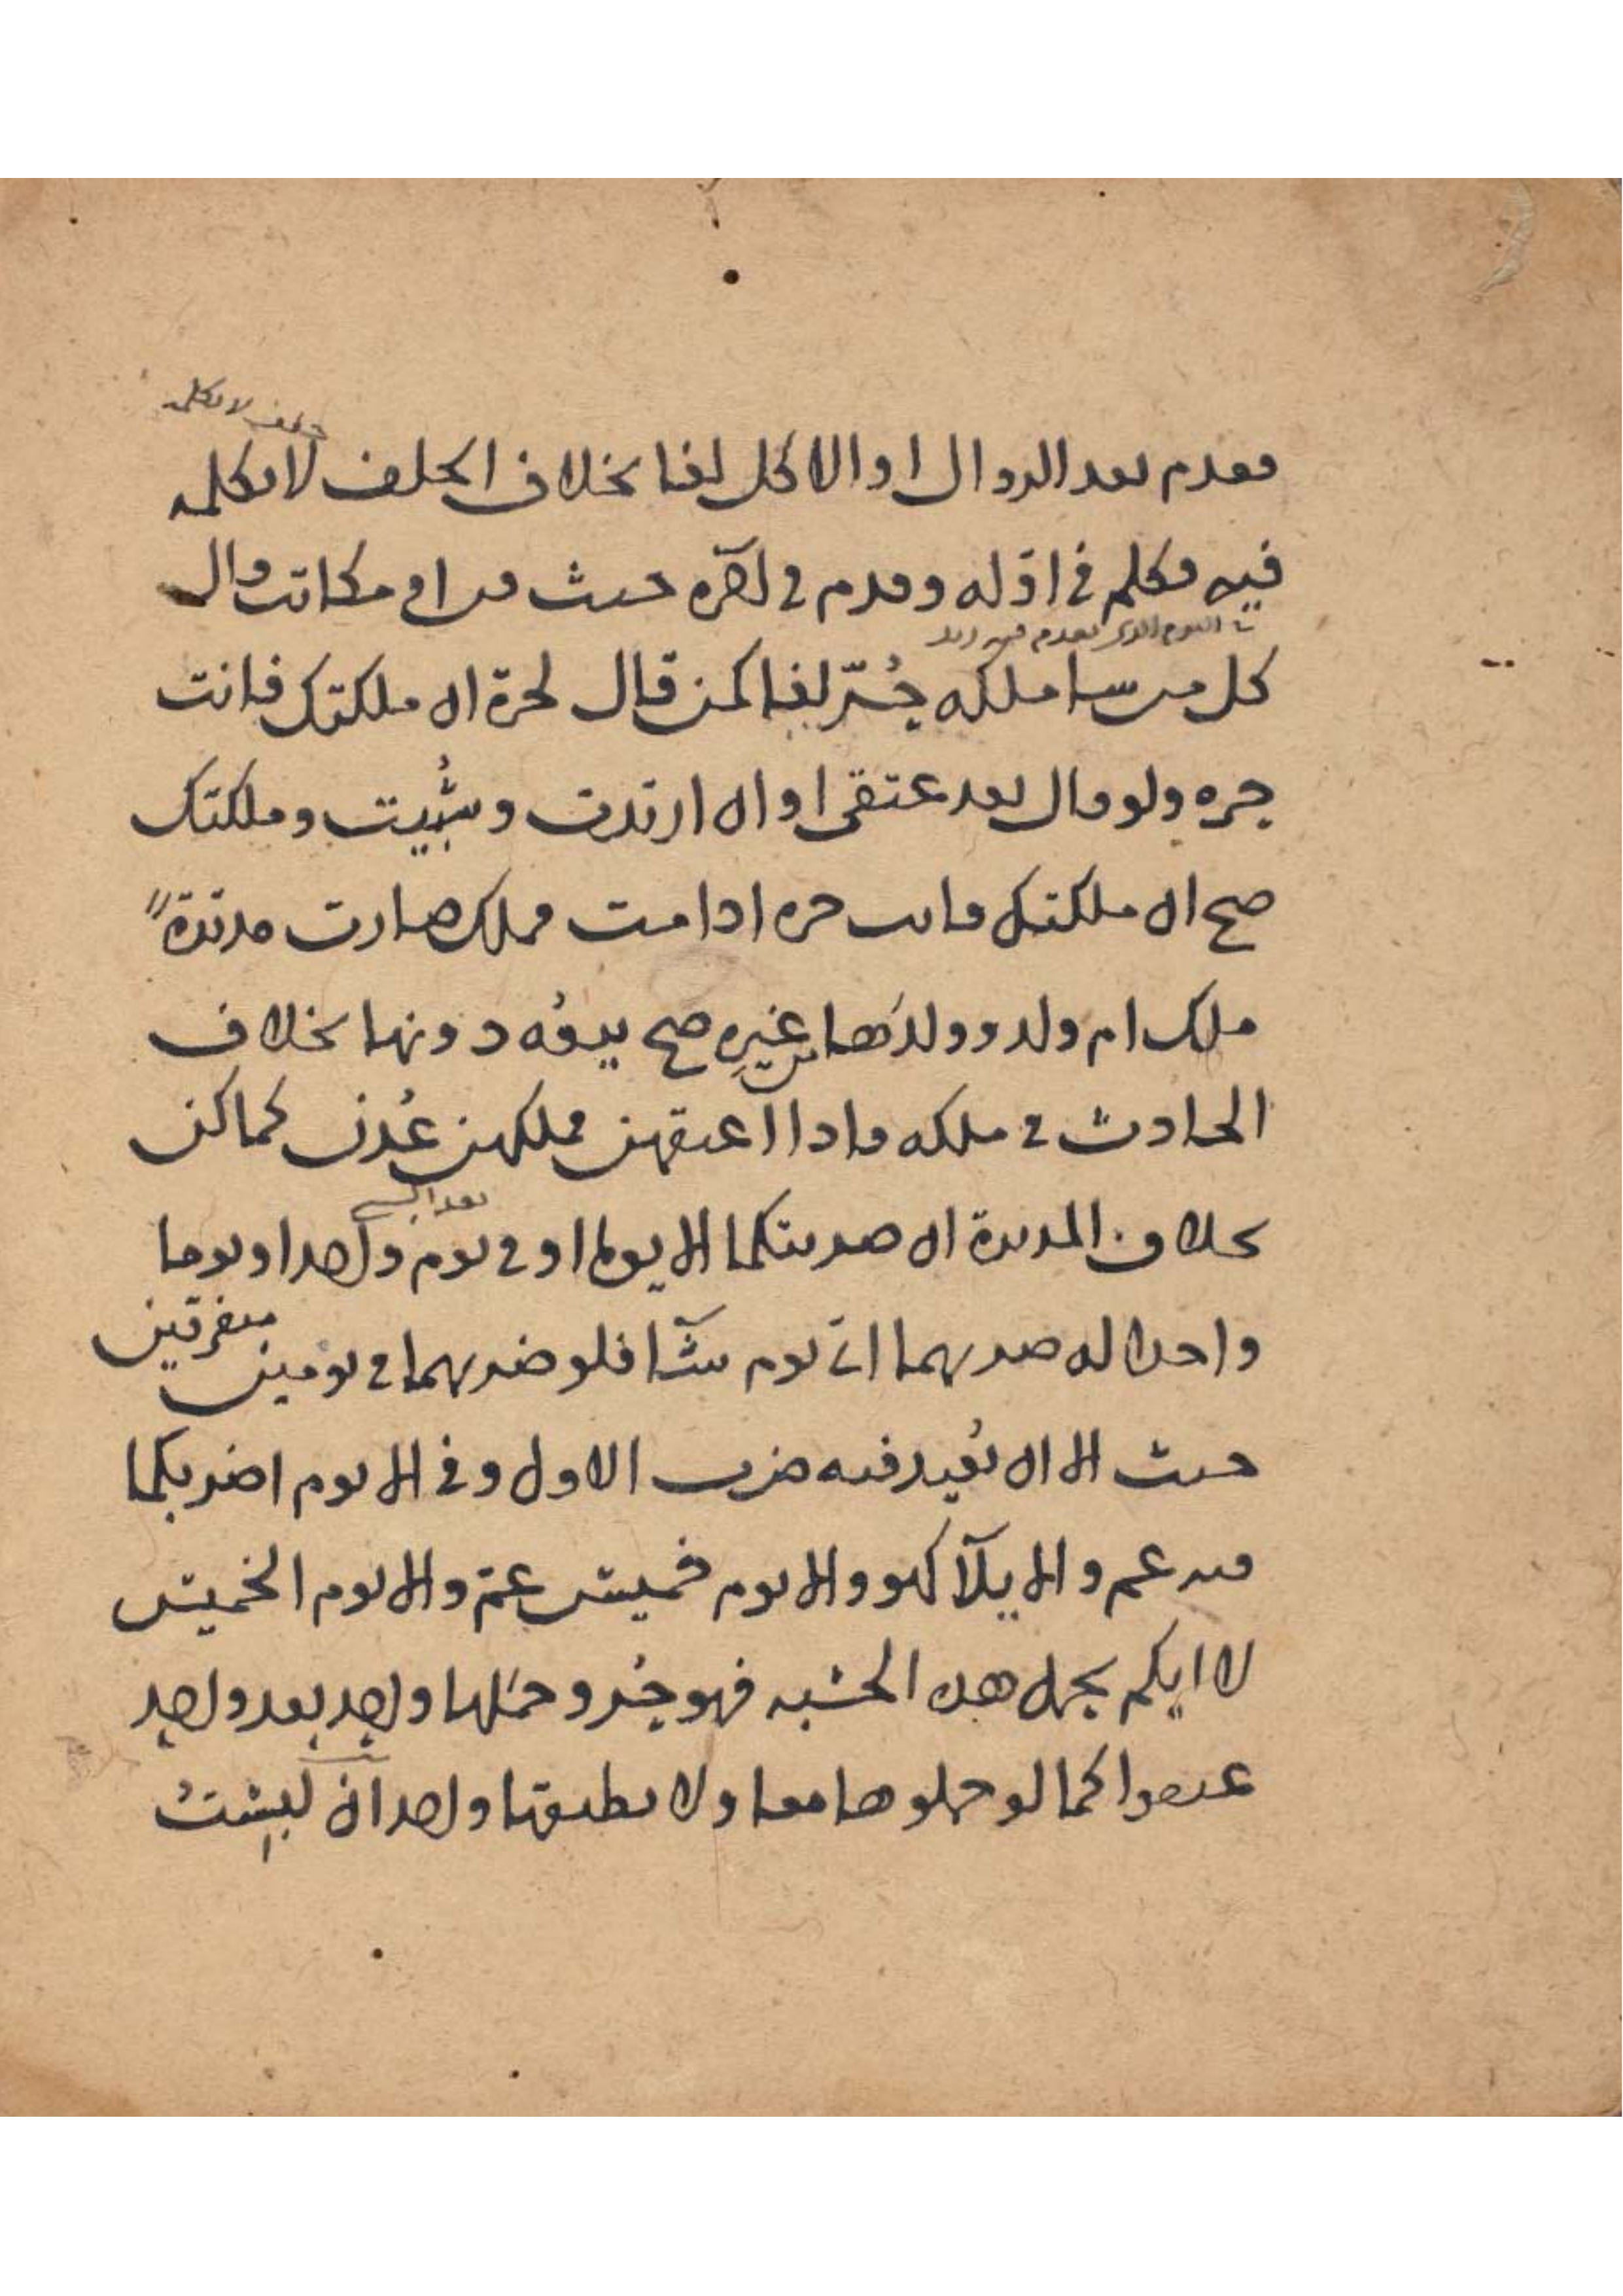 حلف لا يكلمه
فقدم بعد الزوال او الاكل لغا بخلاف الحلف لا يكلمه
فيه فكلم في اوله وقدم في اخره حنث قن او مكاتب قال
اليوم الذي يقدم فيه زيد
كل املكه حر لغا كمن قال لحرة ان ملكتك فانت
حره ولو قال بعد عتقى او ان ارتددت وسُبيت وملكتك
صح ان ملكتك فانت حره اذا مت فملك صارت مدبرة
ملك ام ولد وولدها من غيره صح بيعُه دونها بخلاف
الحادث في ملكه فاذا اعتقهن فملكهن عُدن كما كن
بخلاف المدبرة ان ضربتكما الا يوما او في يوم واحد او يوما
واحدا له ضربهما اي يوم شآ فلو ضربهما في يومين متفرقين
حنث الا ان يُعيد فيه ضرب الاول وفي الا يوم اضربكما
فيه عم والا يلآ كهو والا يوم خميس عمّ والا يوم الخميس
لا ايكم يحمل هذه الخشبه فهو حُر وحمَلها واحد بعد واحد
عتقوا كما لو حملوها معا ولا يطيقها واحد ان لبِستُ